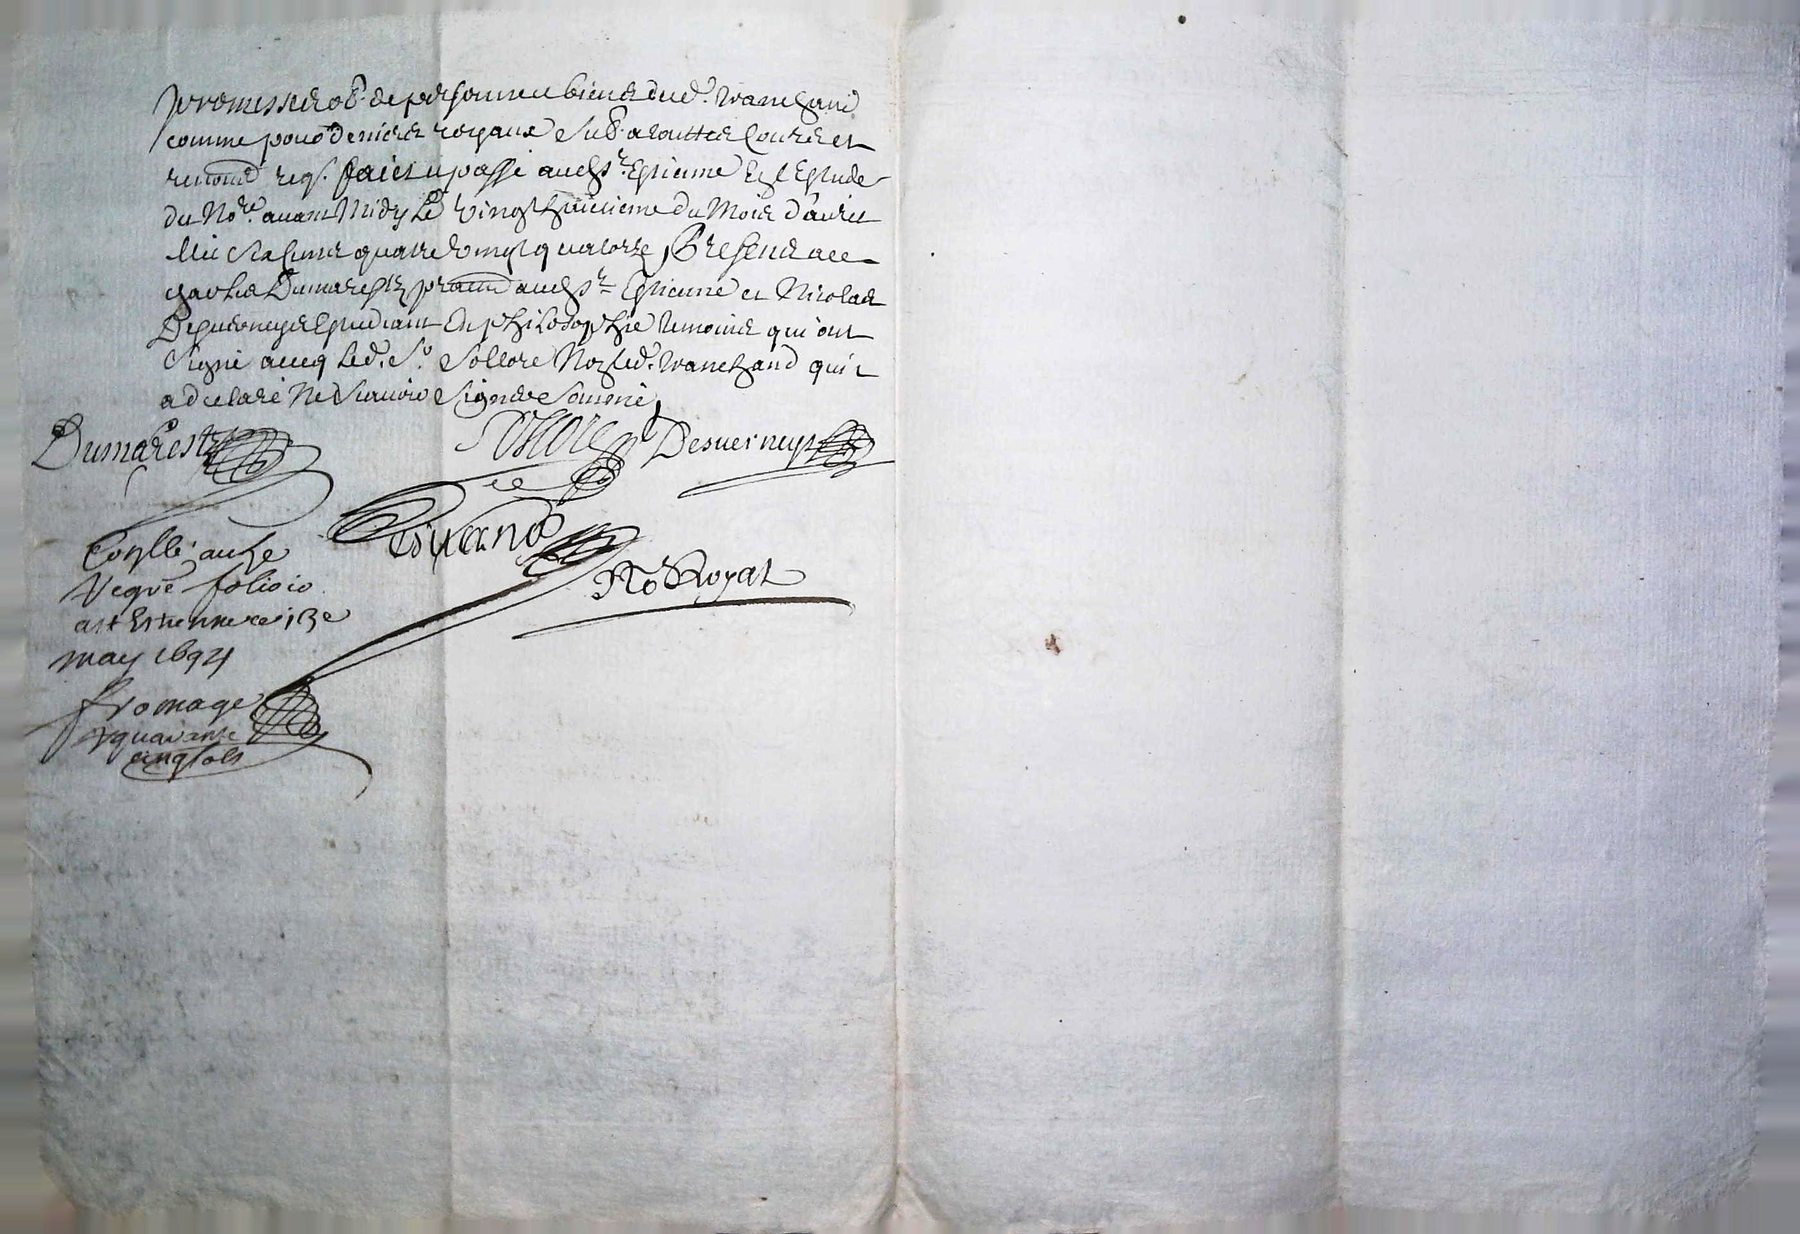 promesses ob. de personne et biens dud. Tranchand
comme pour deniers royaux sub. a touttes Cours et
renond req. faict et passé aud St. Estienne Estude
du Nore. avant Midy Le vingt huictieme du Mois d'avril
Mil six cents quatre vingt quatorze Presents Me
Charles Dumarestz prand aud St. Estienne et Nicolas
Desverneys Estudiant En philosophie temoins qui ont
signé avecq led. Sr. Sollore Non led. Tranchand qui
a declaré Ne scavoir signer sommé
Dumarestz Sollore Desverneys
No Royal
Conllé au
Regre folio 10
a St Estienne ce 13e
may 1694
fromage
quarante
cinq sols